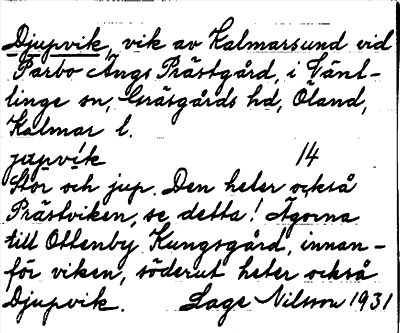 Djupvik, vik av Kalmarsund vid
Parbo Ängs Prästgård, i Vänt-
linge sn, Gräsgårds hd, Öland,
Kalmar l.
jupvik 14
Stor och jup. Den heter också
Prästviken, se detta! Ägorna
till Ottenby Kungsgård, innan-
för viken, söderut heter också
Djupvik. Lage Nilsson 1931